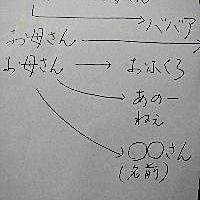 ババア
お母さん
お母さん → おふくろ
あのー
ねぇ
〇〇さん
(名前)